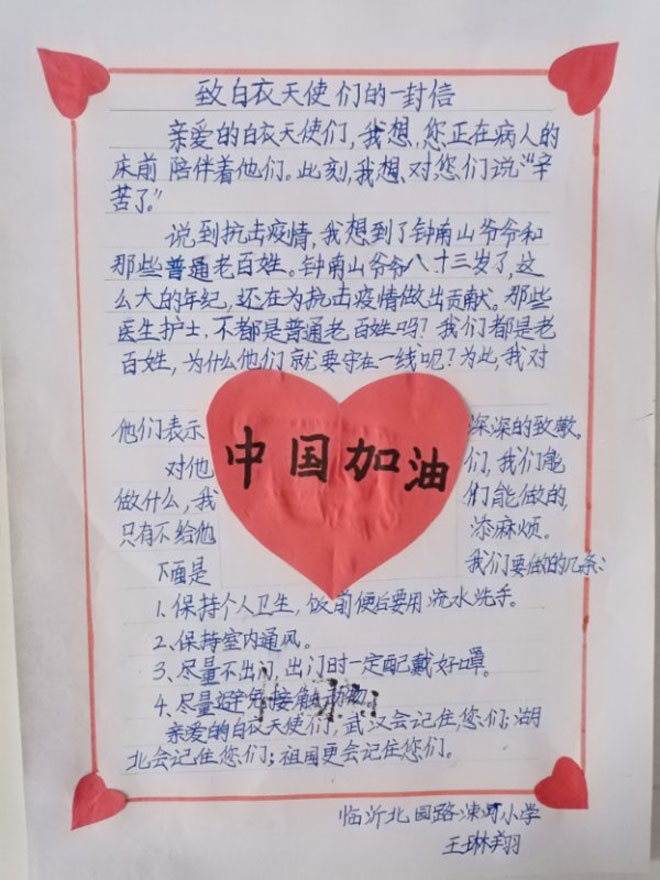 致白衣天使们的一封信
亲爱的白衣天使们,我想,您正在病人的
床前陪伴着他们。此刻,我想对您们说“辛
苦了。”
说到抗击疫情,我想到了钟南山爷爷和
那些普通老百姓。钟南山爷爷八十三岁了,这
么大的年纪,还在为抗击疫情做出贡献。那些
医生护士,不都是普通老百姓吗?我们都是老
百姓,为什么他们就要守在一线呢?为此,我对
他们表示深深的致敬。
中国加油
对他们,我们能
做什么,我们能做的,
只有不给他添麻烦。
下面是我们要做的几条:
1.保持个人卫生,饭前便后要用流水洗手。
2.保持室内通风。
3.尽量不出门,出门时一定配戴好口罩。
4.尽量避免接触动物。
亲爱的白衣天使们,武汉会记住您们;湖
北会记住您们;祖国更会记住您们。
临沂北园路涑河小学
王琳翔